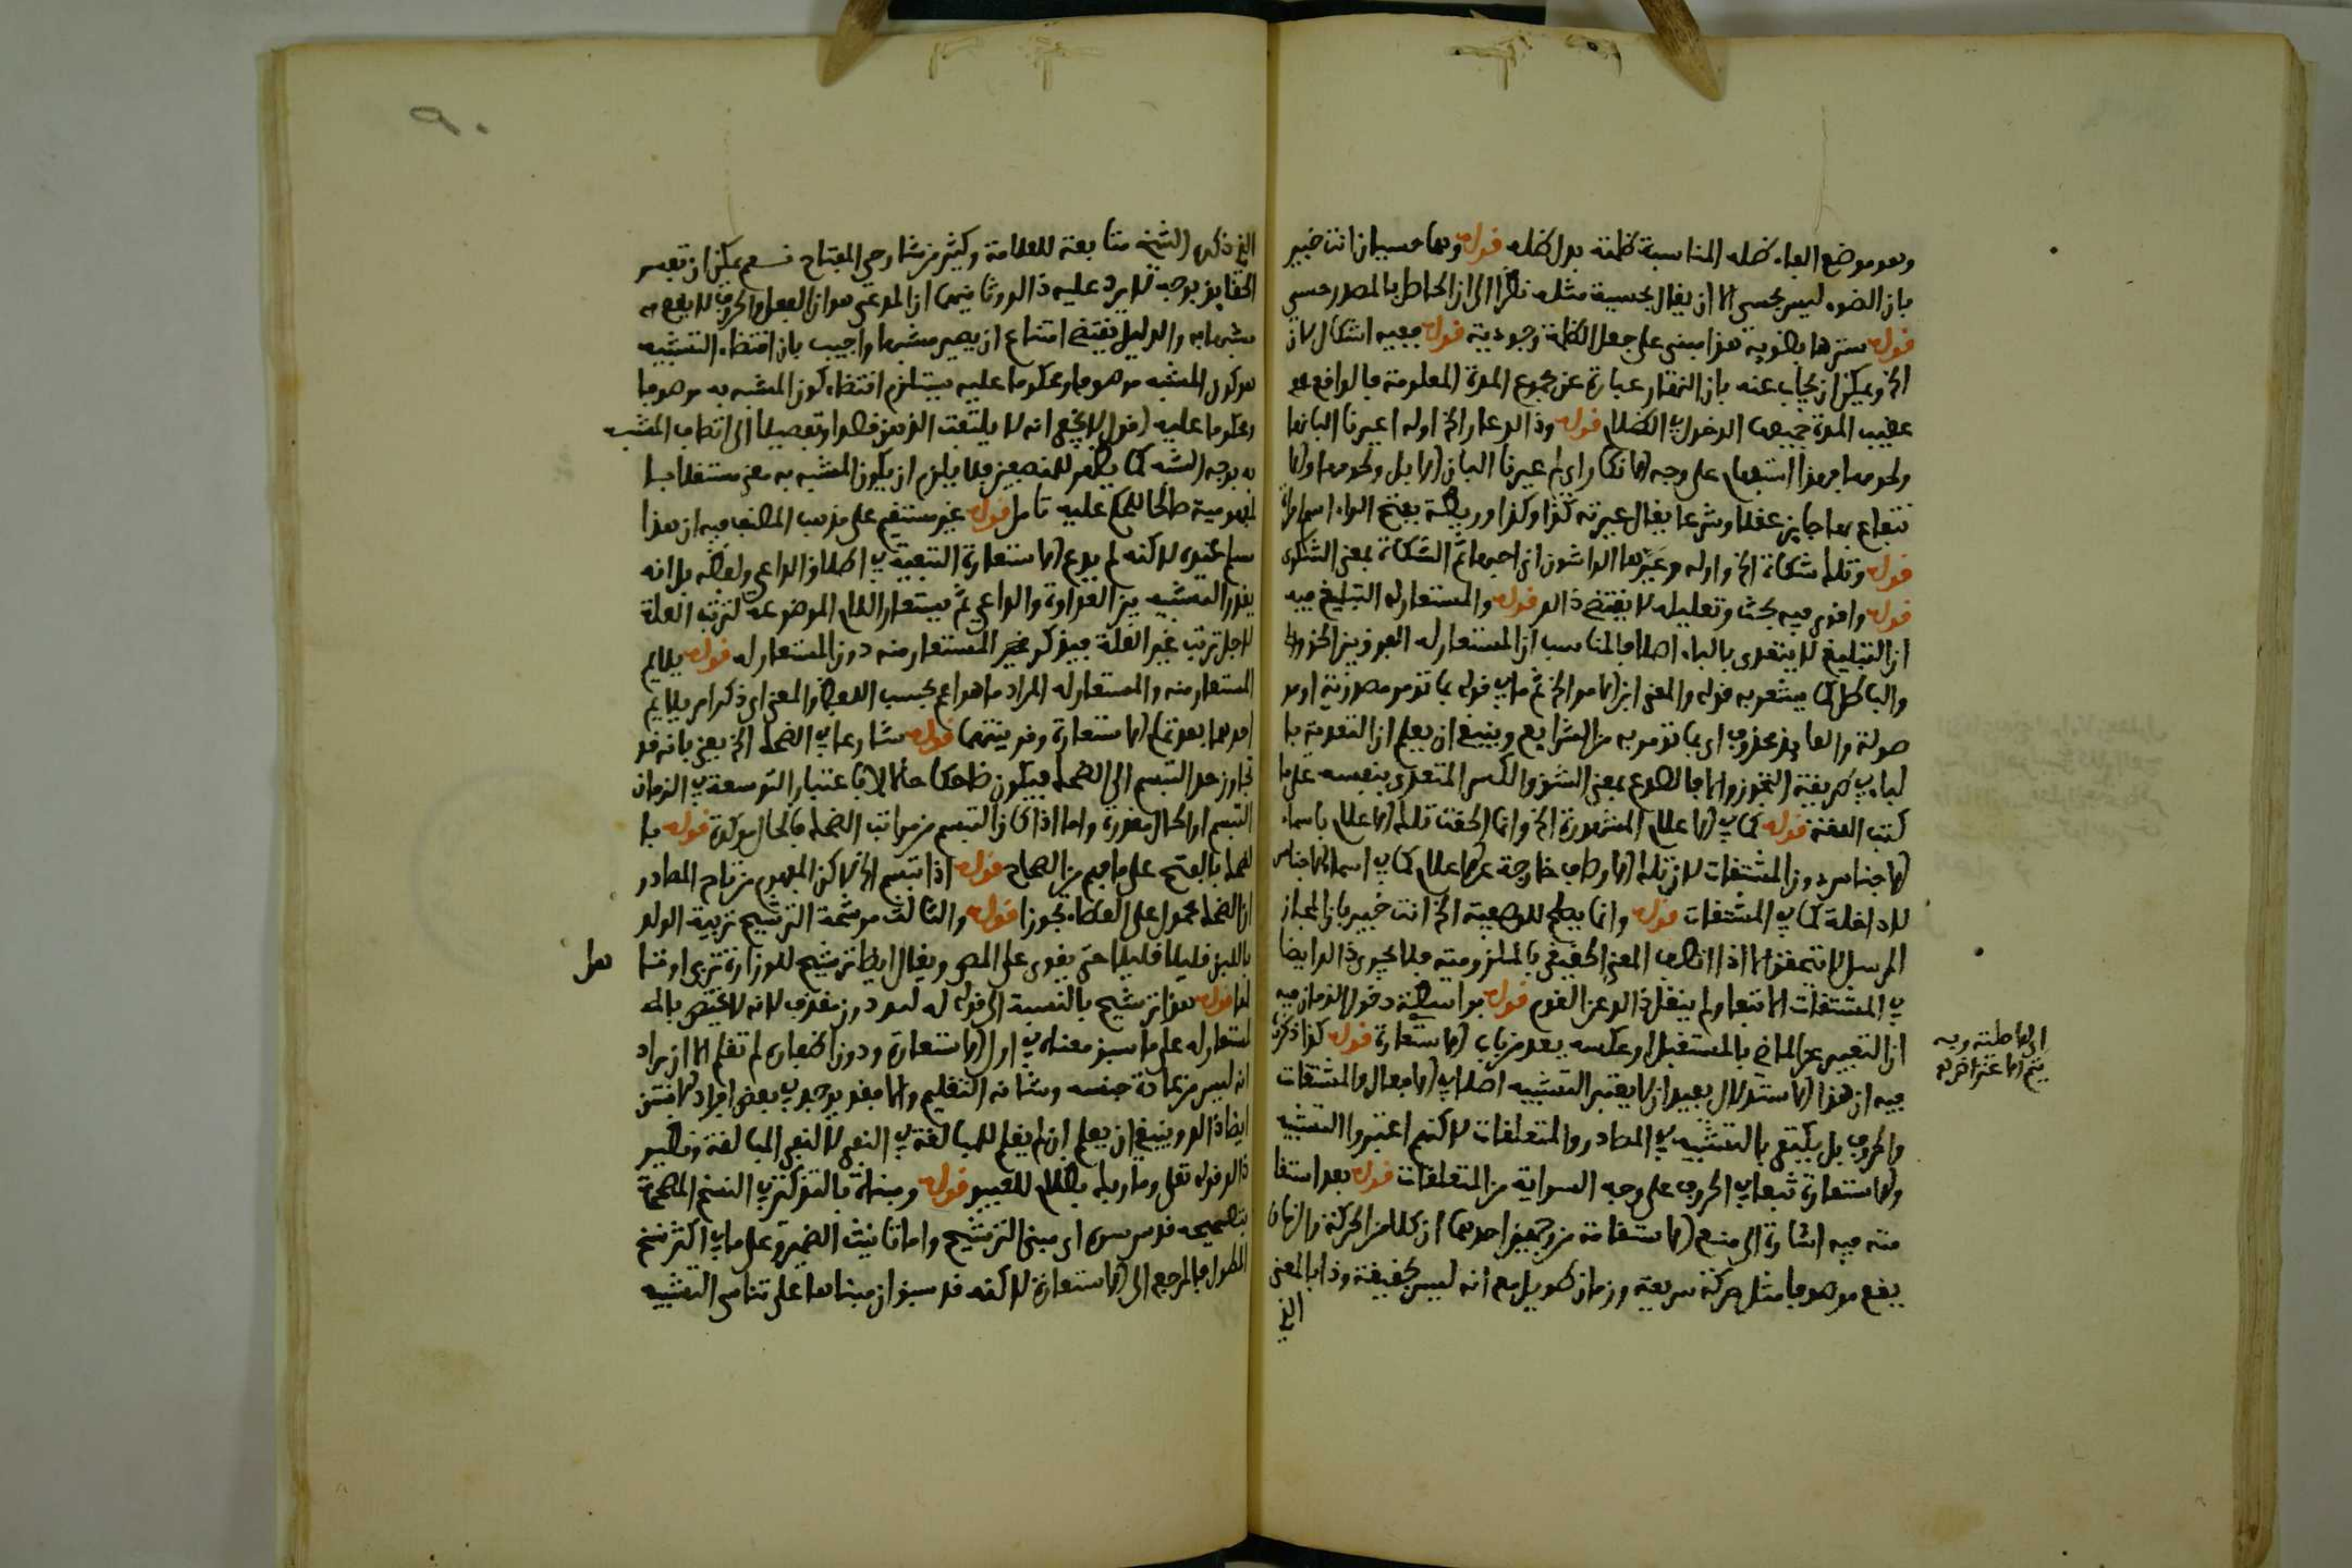 وهو موضع الفاء ظله المناسبة ظلمة بدل ظله قوله وهما حسيان انت خبير
بان الضوء ليس بحسي الا ان يقال بحسية مثله نظرا الى ان الحاصل بالمصدر حسي
قوله سترها بضوئه هذا مبني على جعل الظلمة وجودية قوله ففيه اشكال لان
الخ ويمكن ان يجاب عنه بان النهار عبارة عن مجموع المدة المعلومة فالواقع
عقيب المدة جميعها الدخول في الظلام قوله وذلك عار الخ اوله اعيرتنا البانها
ولحومها على وجه الانكار اي لم عيرتنا البان الابل ولحومها
تباع بها جايز عقلا وشرعا يقال عيرته كذا وكذا وريطة بفتح الراء اسم امراة
قوله وتلك شكاة الخ واوله وعيرها الواشون اني احبها ثم الشكاة بمعنى الشكوى
قوله واقوى فيه بحث وتعليله لا يقتضي ذلك قوله والمستعار له التبليغ فيه
ان التبليغ لا يتعدى بالباء اصلا فالمناسب ان المستعار له الفرق بين الحق
والباطل كما يشعر به قوله والمعنى ابن الامر الخ ثم ما في قوله بما تؤمر مصدرية او مو
صولة والعايد محذوف اي بما تؤمر به من الشرايع وينبغي ان يعلم ان التعدية با
لباء في طريقة التجوز والا فالصدع بمعنى الشق والكسر المتعدي بنفسه على ما
كتب اللغة قوله كما في الاعلام المشهورة الخ وانما الحقت تلك الاعلام باسماء
الاجناس دون المشتقات لان تلك الاوصاف خارجة عن الاعلام كما في اسماء الاجناس
لا داخلة كما في المشتقات قوله وانما يصلح للموصوفية الخ انت خبير بان المجاز
المرسل لا يتحقق الا اذا اتصف المعنى الحقيقي بالملزومية فلا يجري ذلك ايضا
في المشتقات الا تبعا ولم ينقل ذلك عن القوم قوله بواسطة دخول الزمان فيه
ان التعبير عن الماضي بالمستقبل او عكسه يعد من باب الاستعارة قوله كذا ذكره
فيه ان هذا الاستدلال بعيد ان لا يعتبر التشبيه اصلا في الافعال والمشتقات
والحروف بل يكتفى بالتشبيه في المصادر والمتعلقات لاكنهم اعتبروا التشبيه
والاستعارة تبعا في الحروف على وجه السراية من المتعلقات قوله بعد استقا
مته فيه اشارة الى منع الاستقامة من وجهين احدهما ان كلا من الحركة والزمان
يقع موصوفا مثل حركة سريعة وزمان طويل مع انه ليس بحقيقة وذا بالمعنى
الذي
الذي ذكره الشيخ متابعة للعلامة وكثير من شارحي المفتاح نعم يمكن ان تفسر
الحقايق بوجه لا يرد عليه ذلك وثانيهما ان المدعى هو ان الفعل والحروف لا يقع
مشبها به والدليل يقتضي امتناع ان يصير مشبها واجيب بان اقتضاء التشبيه
هو كون المشبه موصوفا ومحكوما عليه يستلزم اقتضاء كون المشبه به موصوفا
ومحكوما عليه اقول لا يخفى انه لا يلتفت الذهن قصدا وتفصيلا الى اتصاف المشبه
به بوجه الشبه كما يظهر للمنصفين فلا يلزم ان يكون المشبه به معنى مستقلا با
لمفهومية صالحا للحكم عليه تامل قوله غير مستقيم على مذهب المصنف فيه ان هذا
لاكنه لم يدع الاستعارة التبعية في اطلاق الداعي ولفظه بل انه
يقدر التشبيه بين العداوة والداعي ثم يستعار اللام الموضوعة لترتب العلة
لاجل ترتب غير العلة فيذكر غير المستعار منه دون المستعار له قوله يلايم
المستعار منه والمستعار له المراد ما هو اعم بحسب اللفظ والمعنى اي ذكر امر يلايم
احدهما بعد تمام الاستعارة وقرينتها قوله شارعا في الضحك الخ يعني بانه قد
تجاوز حد التبسم الى الضحك فيكون ضاحكا حالا لا باعتبار التوسعة في الزمان
التبسم او الحال مقدرة واما اذا كان التبسم من مراتب الضحك فالحال موكدة قوله با
لضحك بالفتح على ما فهم من الصحاح قوله اذا تبسم الخ لاكن المفهوم من تاج المصادر
ان الضحك محمول على العطاء تجوزا قوله والثالث مرشحة الترشيح تربية الولد
باللبن قليلا قليلا حتى يقوى على المص ويقال ايضا ترشيح للوزارة تربى
لها قوله هذا ترشيح بالنسبة الى قوله له لبد دون مقذف لانه لا يختص بالمـ
ـستعار له على ما سبق معناه في اول الاستعارة ودون اظفاره لم تقلم الا ان يراد
انه ليس من عادة جنسه وشانه التقليم والا فقد يوجد في بعض افراد الانسان
ايضا ذلك وينبغي ان يعلم ان لم يقلم للمبالغة في النفي لا لنفي المبالغة ونظير
ذلك قوله تعلى وما ربك بظلام للعبيد قوله ومبناه بالتذكير في النسخ المصححة
بتصحيحه قدس سره اي مبنى الترشيح واما تانيث الضمير على ما في اكثر نسخ
المطول فالمرجع الى الاستعارة لاكنه قد سبق ان مبناها على تناسي التشبيه